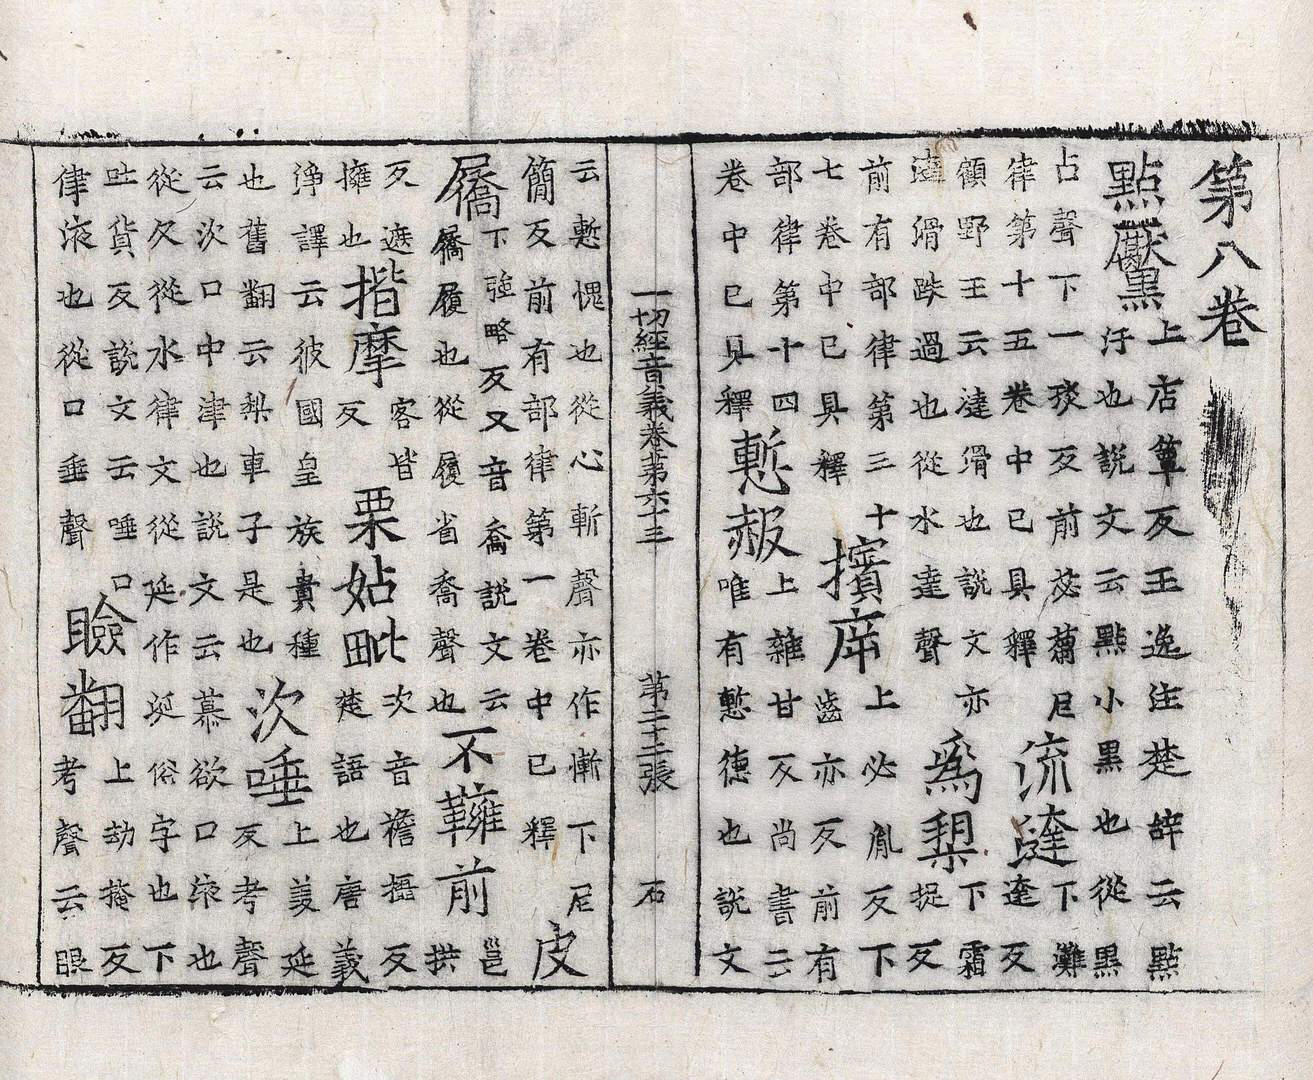 第八卷
點黶
上店簟反王逸注楚辭云點
汙也說文云點小黑也從黑
占聲下一琰反前苾蒭尼
律第十五卷中已具釋
流澾
下灘
達反
顧野王云澾滑也說文亦
澾滑跌過也從水達聲
為槊
下霜
捉反
前有部律第三十
七卷中已具釋
擯庌
上必胤反下
齒亦反前有
部律第十四
卷中已具釋
慙赧
上雜甘反尚書云
唯有慙德也說文
一切經音義卷第六十三 第二十二張 石
云慙愧也從心斬聲亦作慚下尼
簡反前有部律第一卷中已釋
皮
屩
下強略反又音喬說文云
屩履也從履省喬聲也
不𩍓前
邕
拱
反遮
擁也
揩摩
客皆
反
栗姑毗
次音襜攝反
楚語也唐義
淨譯云彼國皇族貴種
也舊翻云梨車子是也
次唾
上羨延
反考聲
云次口中津也說文云慕欲口液也
從欠從水律文從延作涎俗字也下
吐貨反說文云唾口
律液也從口垂聲
瞼翻
上劫掩反
考聲云眼